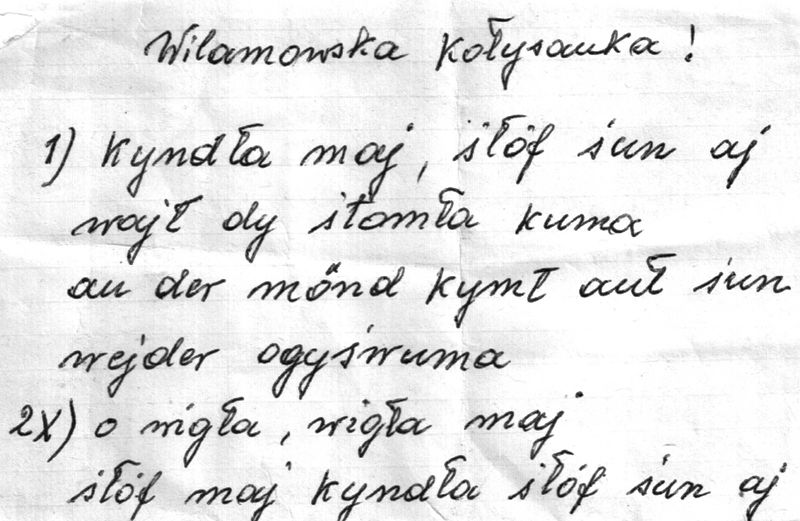 Wilamowska kołysanka!
1) Kyndła maj, śłöf śun aj
wajł dy śtomła kuma
an der mönd kymt auł śun
wejder ogyśwuma
2x) o wigła, wigła maj
śłöf maj kyndła śłöf śun aj